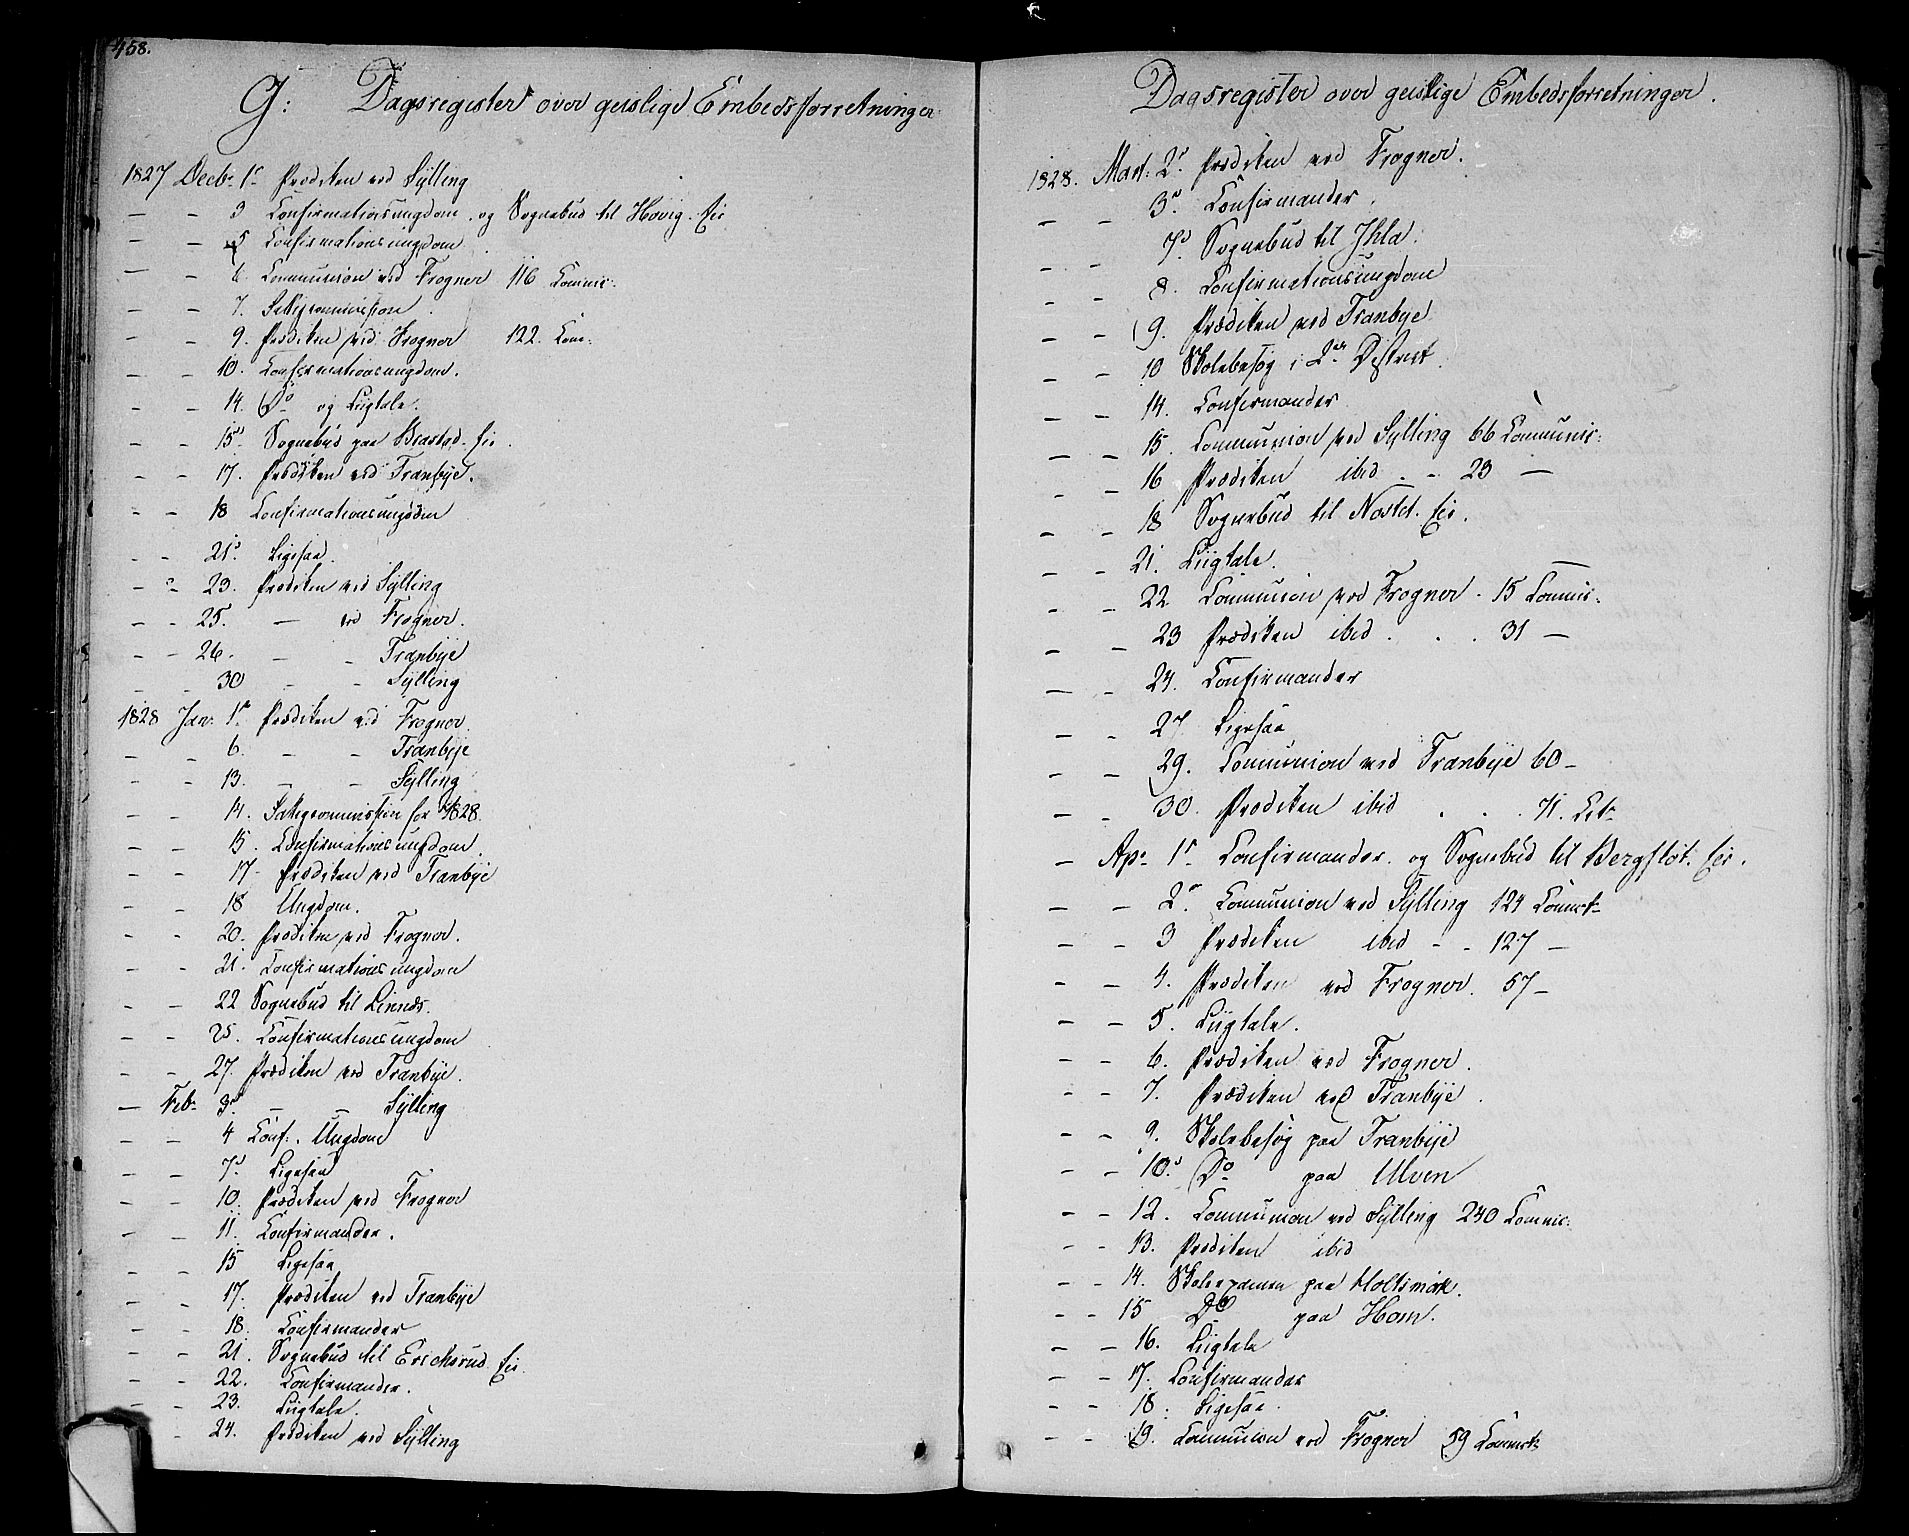 458.
G: Dagsregister over geislige Embedsforretninger
1827 Decbr 1e Prædiken ved Sylling
— - 3 Confirmationsungdom og Sognebud til Hovig. Eie
— - 5 Confirmationsungdom
— - 6 Communion ved Frogner 116 Commis:
— - 7. Sættecommission
— - 9. Prædiken ved Frogner 122. Com:
— - 10. Confirmationsungdom.
— - 14. Do og Liigtale.
— - 15d Sognebud paa Brastad-Eie.
— - 17. Prædiken ved Tranbye.
— - 18 Confirmationsungdom
— - 21d. Ligesaa.
— - 23. Prædiken ved Sylling
— - 25. — ved Frogner.
— - 26. - - Tranbye
— - 30 - - Sylling
1828 Jan: 1e Prædiken ved Frogner.
— - 6. - - Tranbye
— - 13. - - Sylling
— - 14. for 1828.
— - 15. Confirmationsungdom.
— - 17. Prædiken ved Tranbye
— - 18 Ungdom.
— - 20. Prædiken ved Frogner.
— - 21. Confirmationsungdom
— - 22 Sognebud til Linnes.
— - 25. Confirmationsungdom
— - 27. Prædiken ved Tranbye.
— Feb. 3d — — Sylling
— - 4 Conf:. Ungdom
— - 7d. Ligesaa
— - 10. Prædiken ved Frogner
— - 11. Confirmander.
— - 15 Ligesaa
— - 17. Prædiken ved Tranbye
— - 18. Confirmander
— - 21. Sognebud til Ericksrud Eie.
— - 22. Confirmander.
- 23. Liigtale.
- 24. Prædiken ved Sylling
Dagsregister over geislige Embedsforretninger.
1828. Mart: 2d. Prædiken ved Frogner.
— — 3d. Confirmander.
— — 7d. Sognebud til Ihla.
— — 8. Confirmationsungdom
— — 9. Prædiken ved Tranbye
— — 10 Skolebesøg i 2det Distrect.
— — 14. Confirmander
— — 15. Communion ved Sylling 66 Communic:
— — 16 Prædiken ibid. - 23 —
— — 18 Sognebud til Nøstet. Eie.
— — 21. Liigtale.
— — 22 Communion ved Frogner. 15 Commis:
— — 23 Prædiken ibid. . . 31 —
— — 24. Confirmander
— — 27 Ligesaa
— — 29. Communion ved Tranbye 60 -
— — 30. Prædiken ibid . . . 71.
— Apr. 1e Confirmander. og Sognebud til Bergfløt. Eie.
— — 2den Communion ved Sylling 124
— — 3 Prædiken ibid - - 127 —
— — 4. Prædiken ved Frogner. 57 —
— — 5. Liigtale.
— — 6. Prædiken ved Frogner.
— — 7. Prædiken ved Tranbye.
— — 9. Skolebesøg paa Tranbye
— — 10d. Do paa Ulven
— — 12. Communion ved Sylling 240 Commis:
— — 13. Prædiken ibid
— — 14. Skoleexamen paa Holtsmark.
— — 15 Do paa Horn.
— — 16. Liigtale
— — 17. Confirmander
— — 18. Ligesaa.
— — 19. Communion ved Frogner 59